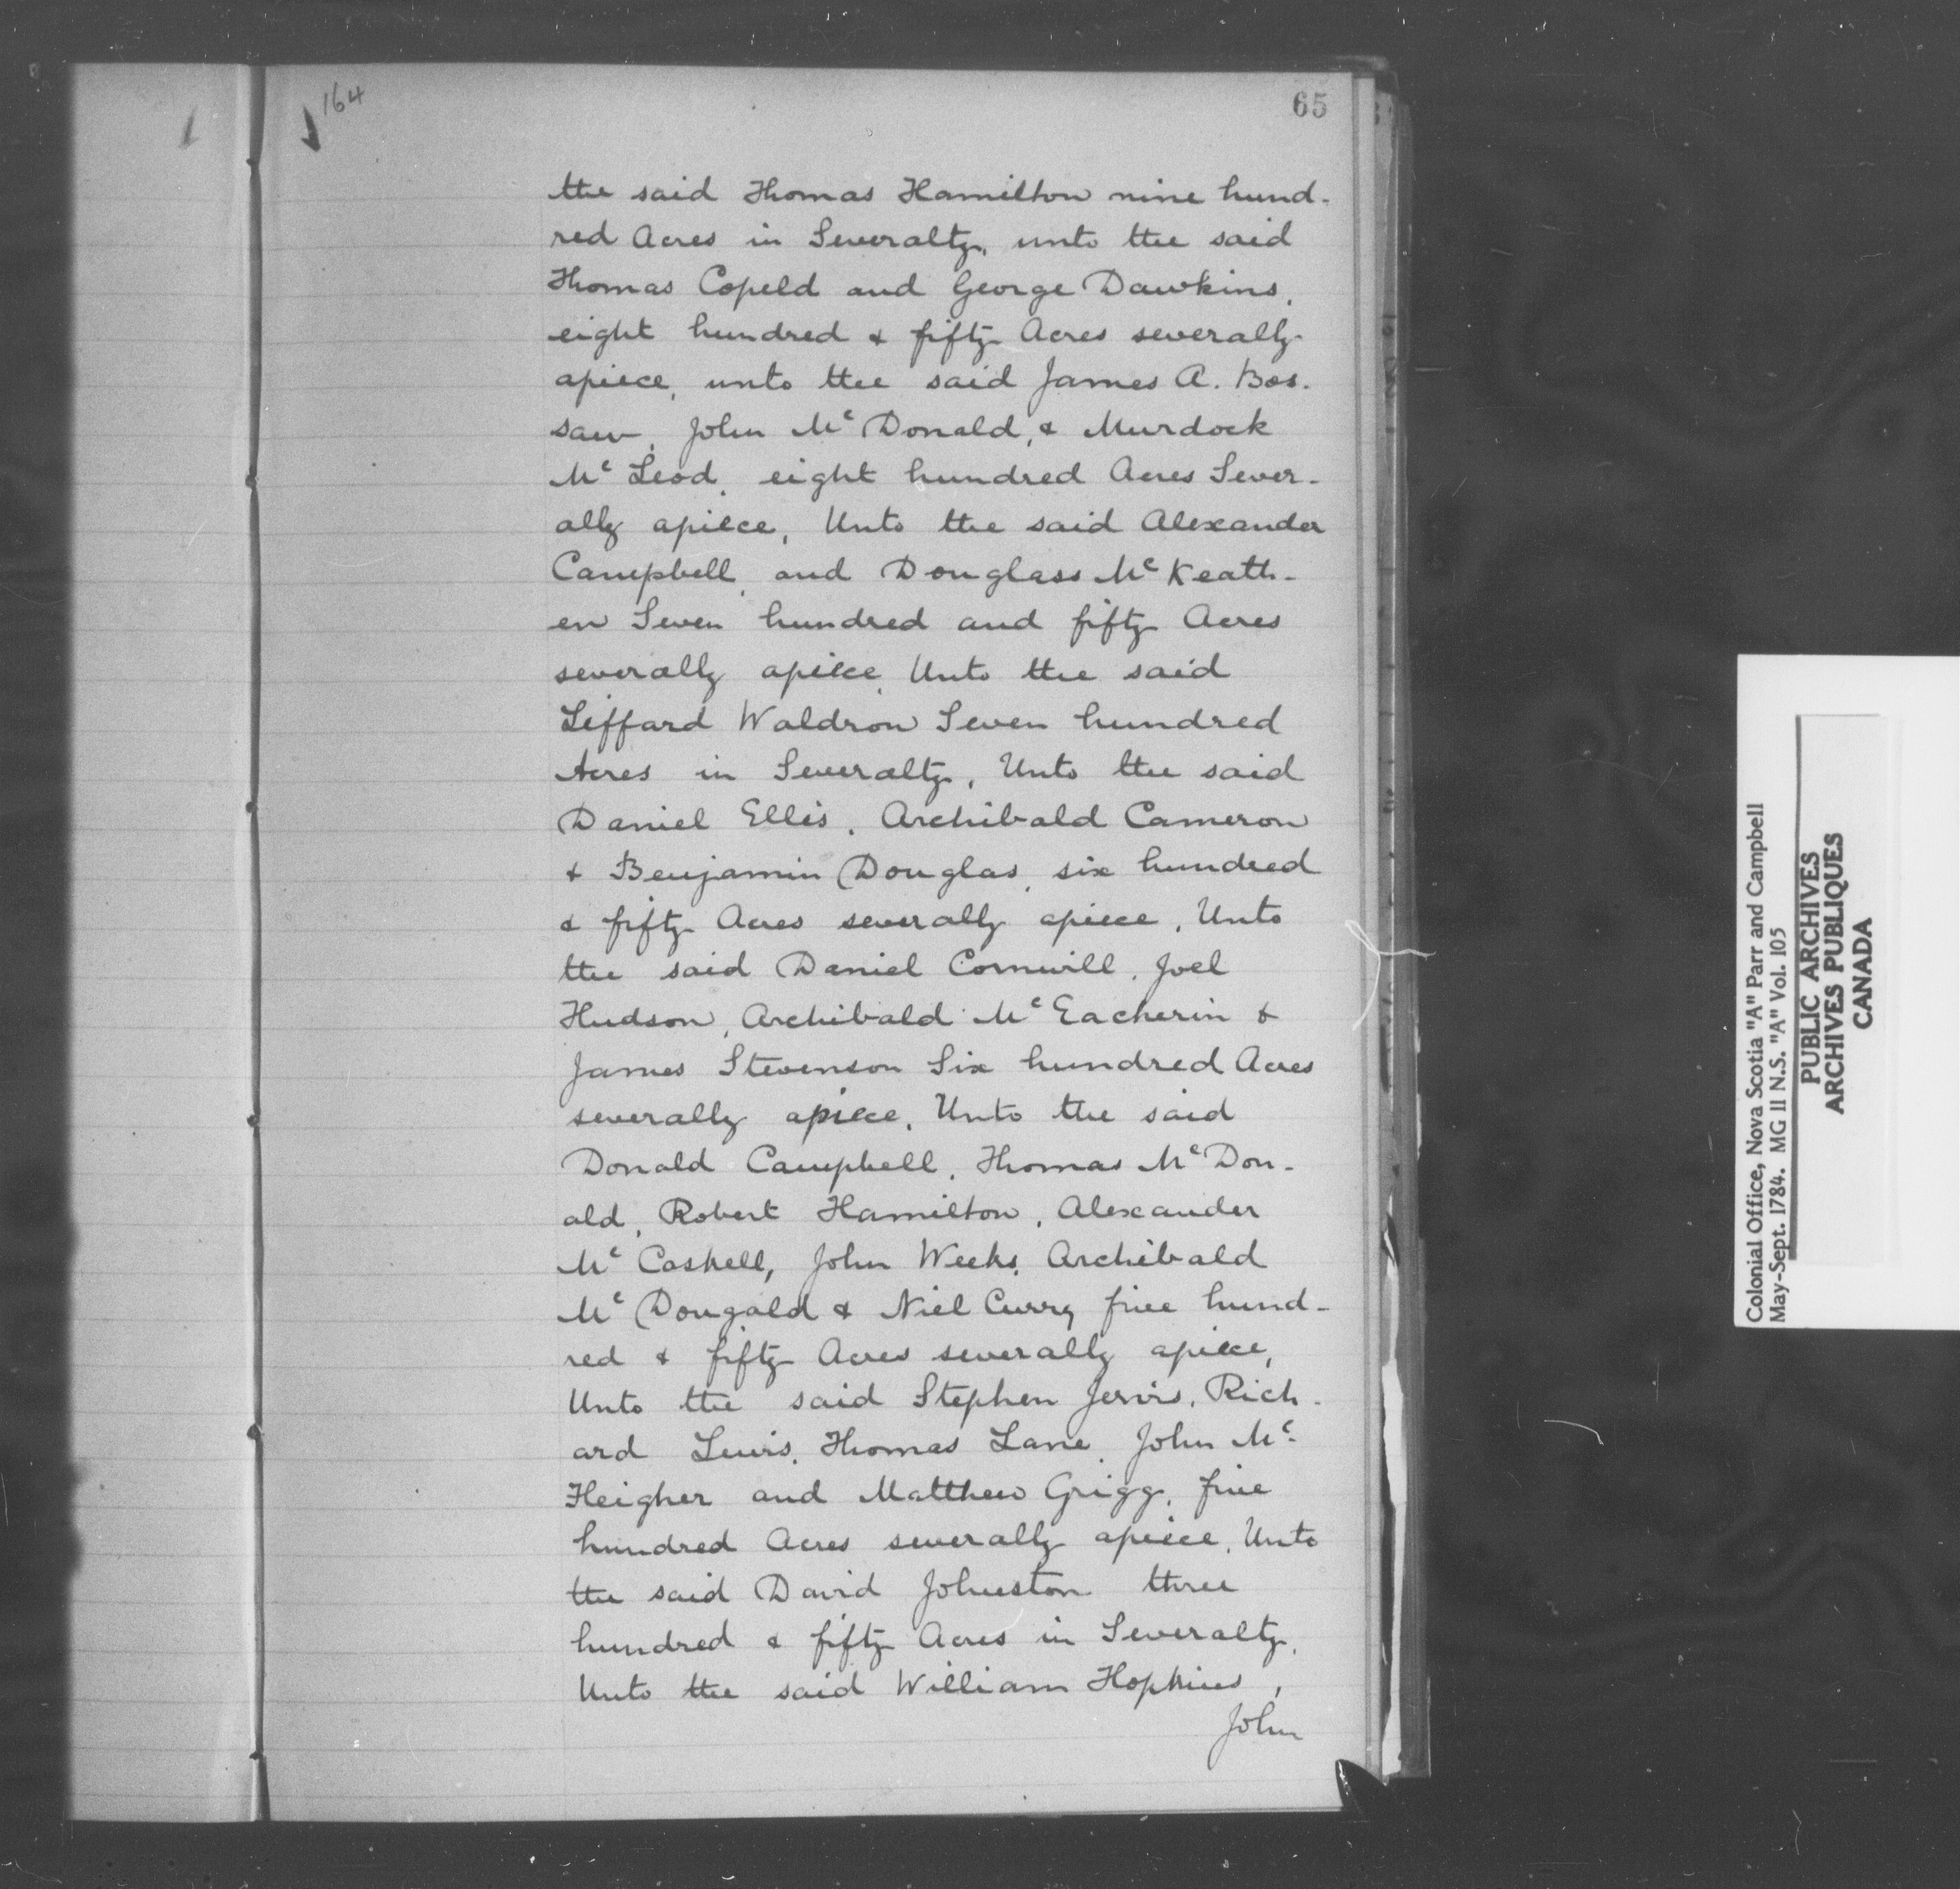 164
65
the said Thomas Hamilton nine hund-
red Acres in Severalty, unto the said
Thomas Copeld and George Dawkins,
eight hundred & fifty Acres severally
apiece, unto the said James A. Bos-
saw, John Mc Donald, & Murdock
Mc Leod, eight hundred Acres Sever-
ally apiece, Unto the said Alexander
Campbell, and Douglass Mc Keath-
en Seven hundred and fifty Acres
severally apiece, Unto the said
Leffard Waldron Seven hundred
Acres in Severalty, Unto the said
Daniel Ellis, Archibald Cameron
& Benjamin Douglas, six hundred
& fifty Acres severally apiece, Unto
the said Daniel Cornwill, Joel
Hudson, Archibald Mc Eacherin &
James Stevenson Six hundred Acres
severally apiece, Unto the said
Donald Campbell, Thomas Mc Don-
ald, Robert Hamilton, Alexander
Mc Caskell, John Weeks, Archibald
Mc Dougald & Niel Curry five hund-
red & fifty Acres severally apiece,
Unto the said Stephen Jervis, Rich-
ard Lewis, Thomas Lane, John Mc
Heigher and Matthew Grigg, five
hundred Acres severally apiece, Unto
the said David Johnston three
hundred & fifty Acres in Severalty,
Unto the said William Hopkins,
John
Colonial Office, Nova Scotia "A" Parr and Campbell
May-Sept. 1784. MG 11 N.S. "A" Vol. 105
PUBLIC ARCHIVES
ARCHIVES PUBLIQUES
CANADA